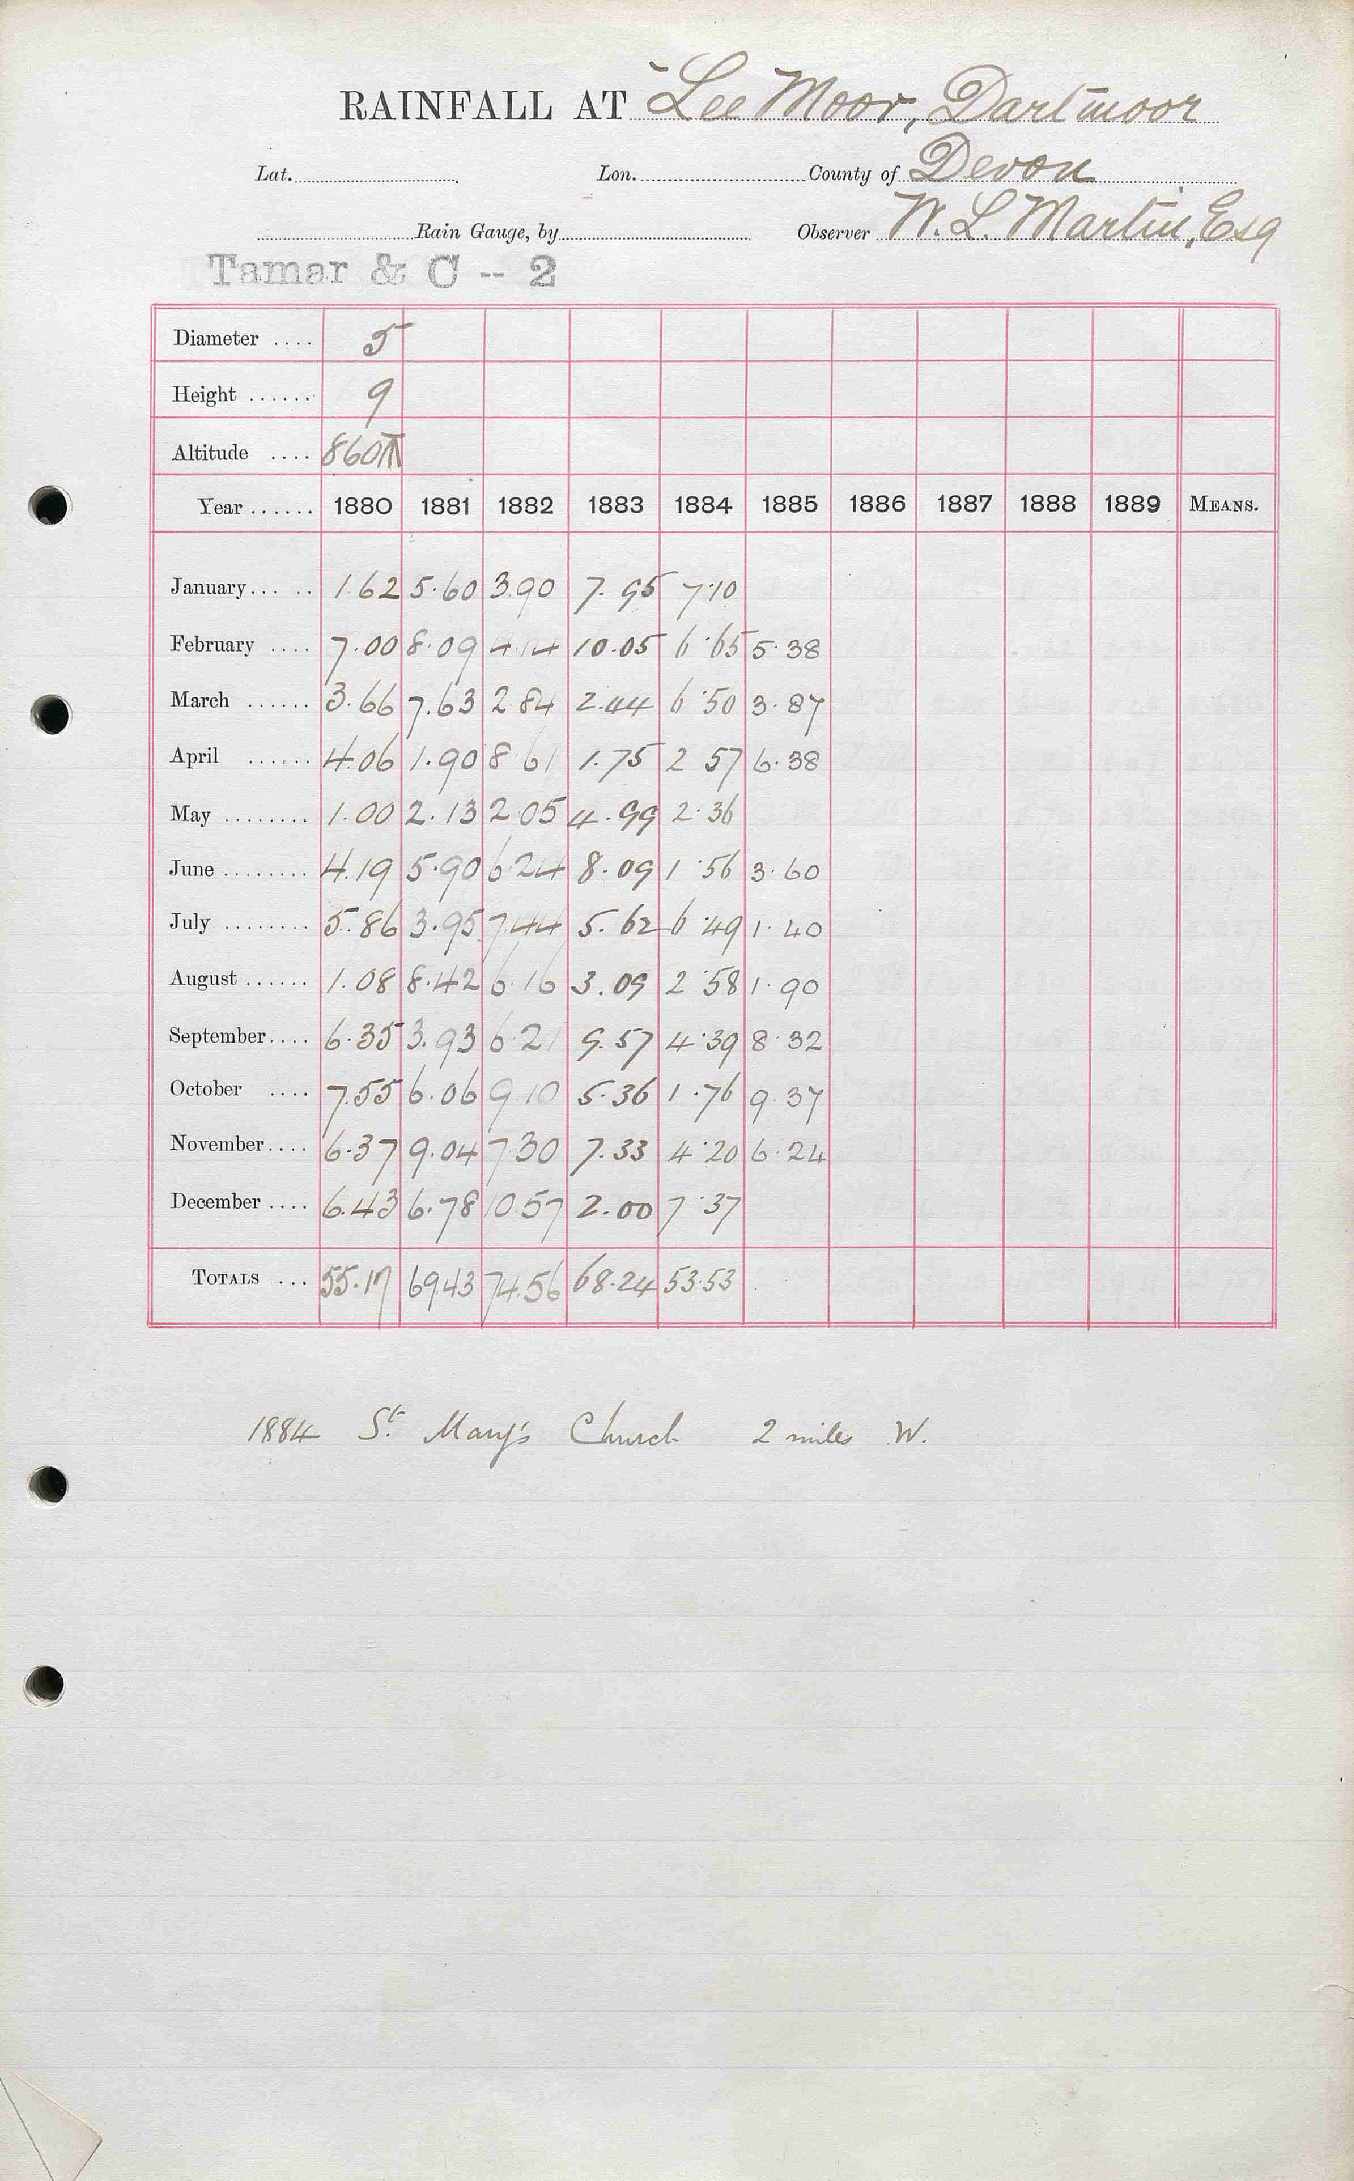 RAINFALL AT Lee Moor, Dartmoor
Lat. Lon. County of Devon
Rain Gauge, by Observer W. L. Martin, Esq
Tamar & C -- 2
Diameter .... 5
Height ...... 9
Altitude .... 860ft
Year ...... 1880 1881 1882 1883 1884 1885 1886 1887 1888 1889 MEANS.
January... .. 1.62 5.60 3.90 7.95 7.10
February .... 7.00 8.09 4.14 10.05 6.65 5.38
March ...... 3.66 7.63 2 84 2.44 6.50 3.87
April ...... 4.06 1.90 8 61 1.75 2 57 6.38
May ........ 1.00 2.13 2 05 4.99 2.36
June ........ 4.19 5.90 6 24 8.09 1.56 3.60
July ........ 5.86 3.95 7.44 5.62 6.49 1.40
August ...... 1.08 8.42 6.16 3.09 2.58 1.90
September.... 6.35 3.93 6.21 9.57 4.39 8.32
October .... 7.55 6.06 9.10 5.36 1.76 9.37
November.... 6.37 9.04 7.30 7.33 4.20 6.24
December .... 6.43 6.78 10.57 2.00 7.37
TOTALS ... 55.17 69.43 74.56 68.24 53.53
1884 St. Mary's Church 2 miles W.